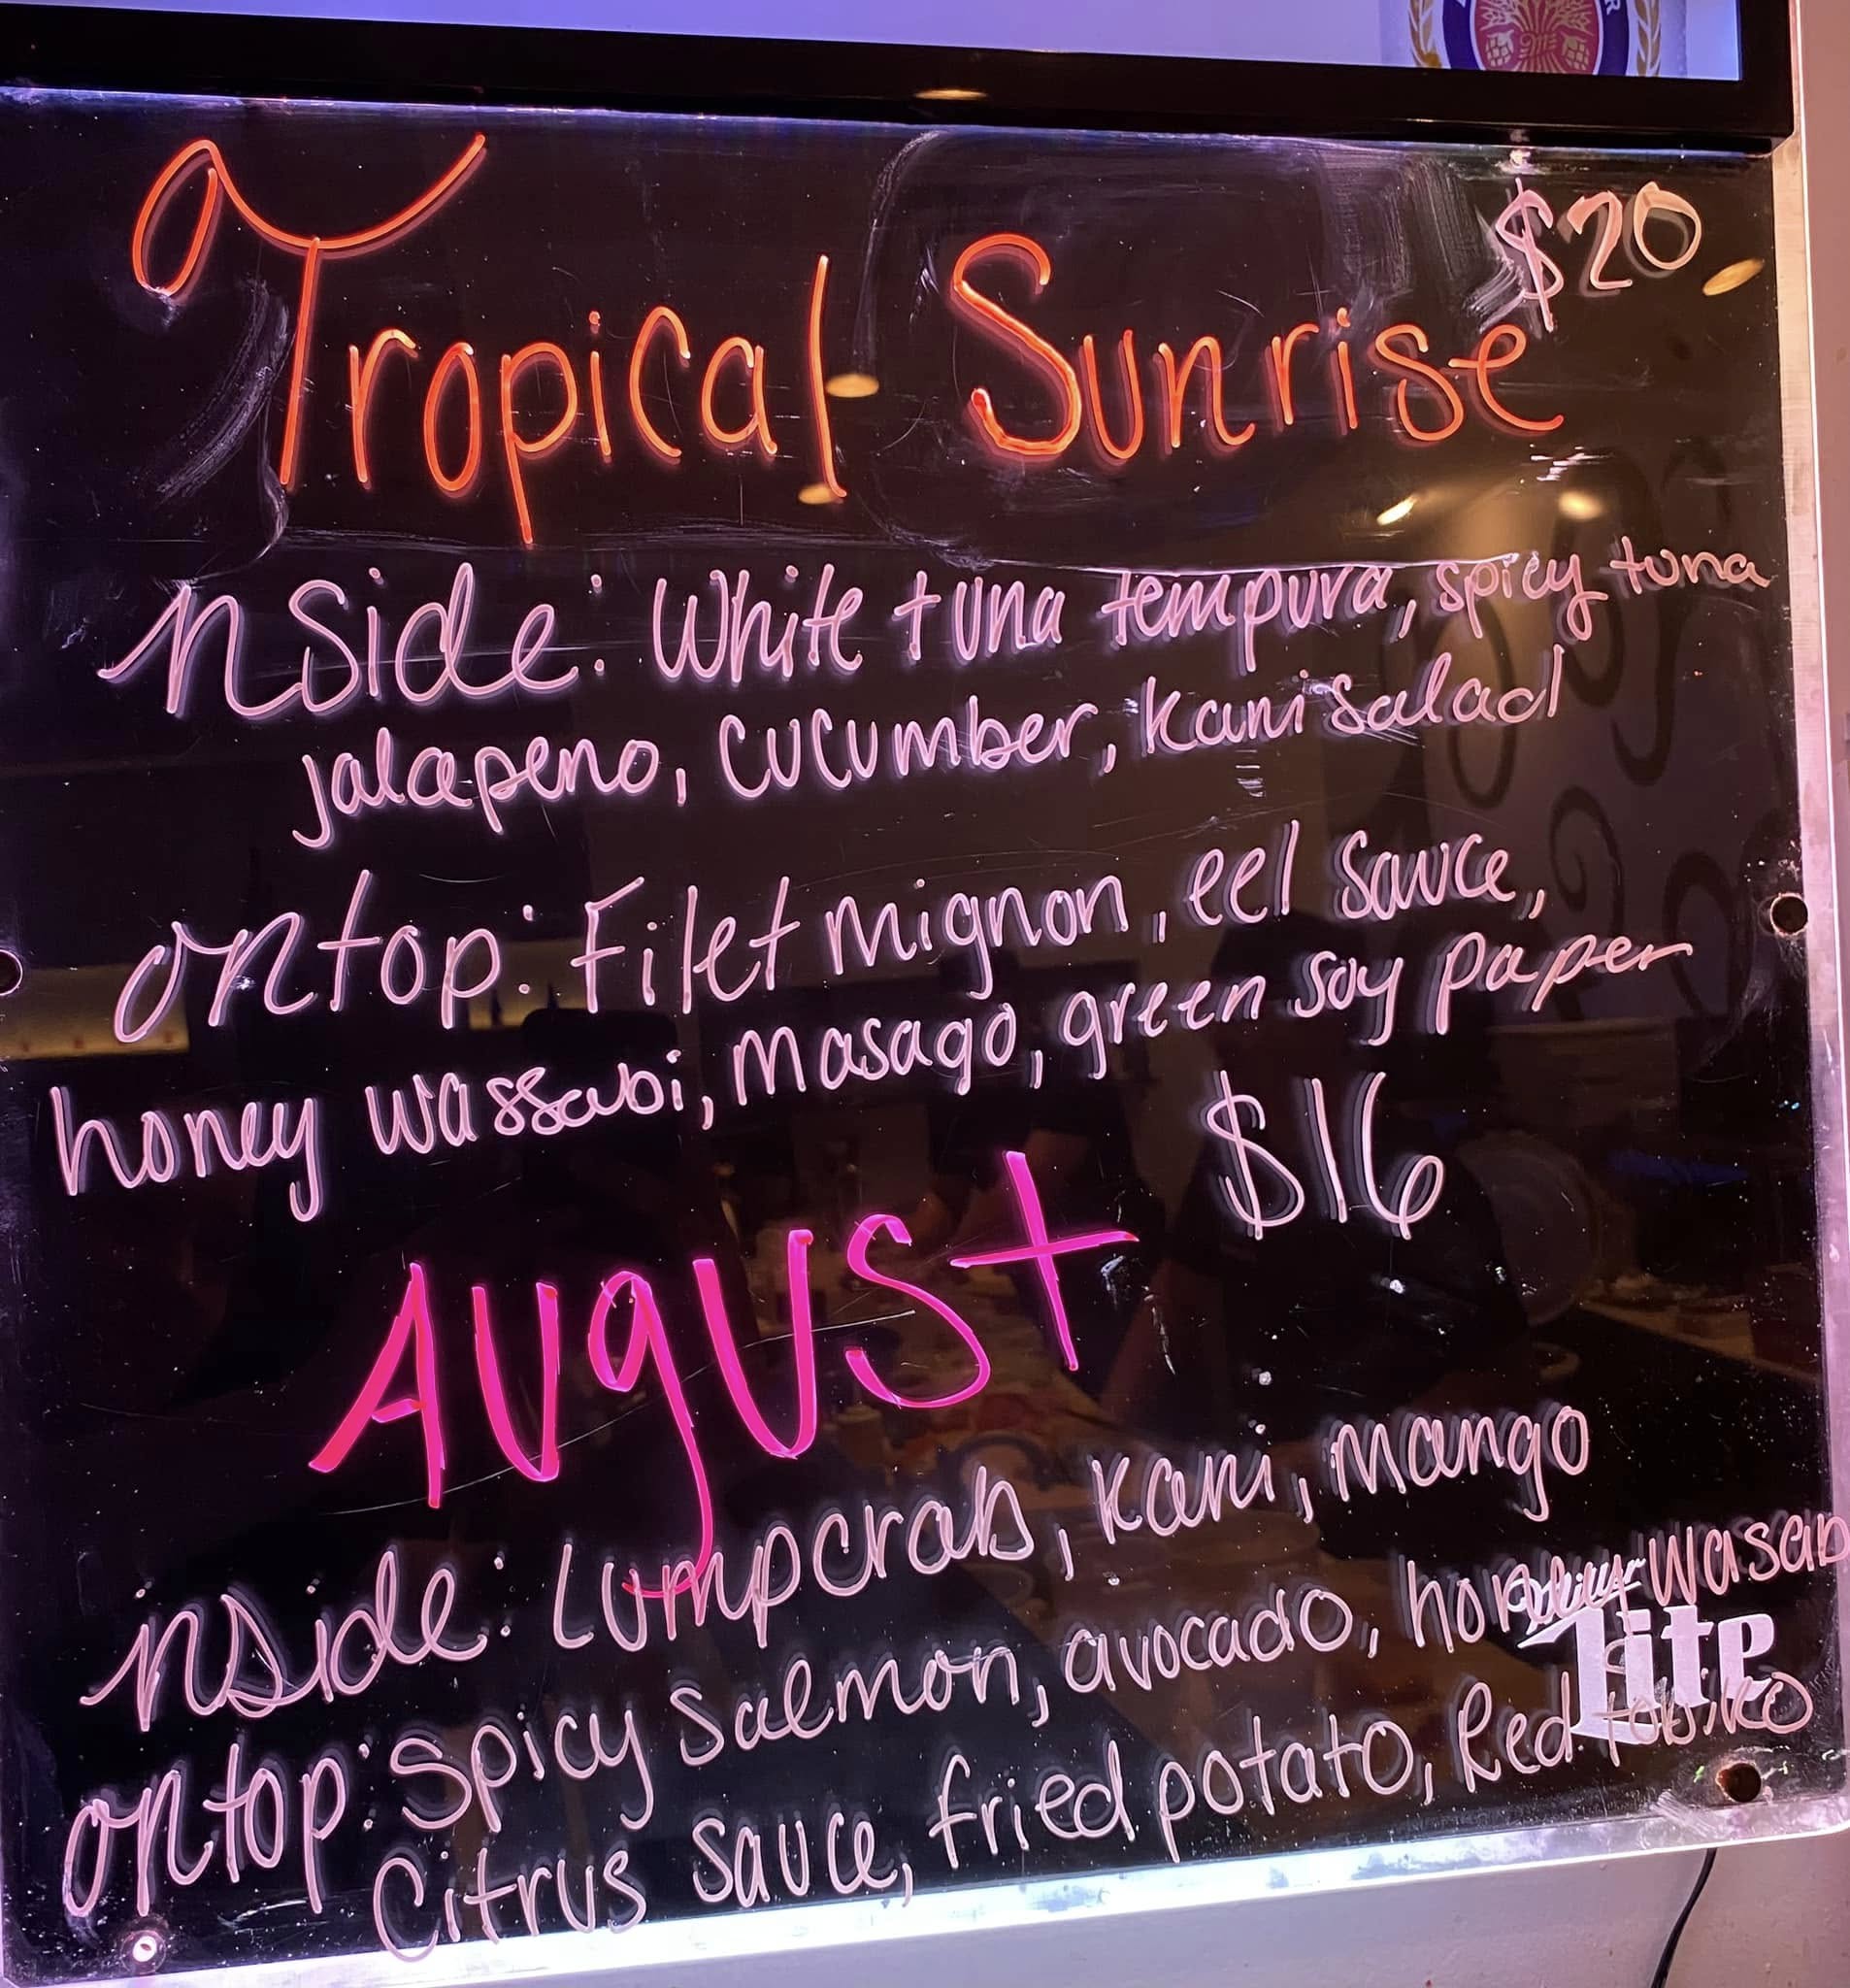 $20
Tropical Sunrise
nside: White tuna tempura, spicy tuna
jalapeno, cucumber, kani salad
ontop: Filet mignon, eel sauce,
honey wassabi, masago, green soy paper
$16
August
inside: Lumpcrab, kani, mango
ontop: Spicy Salmon, avocado, honey wasab
Lite
Citrus sauce, fried potato, Red tobiko